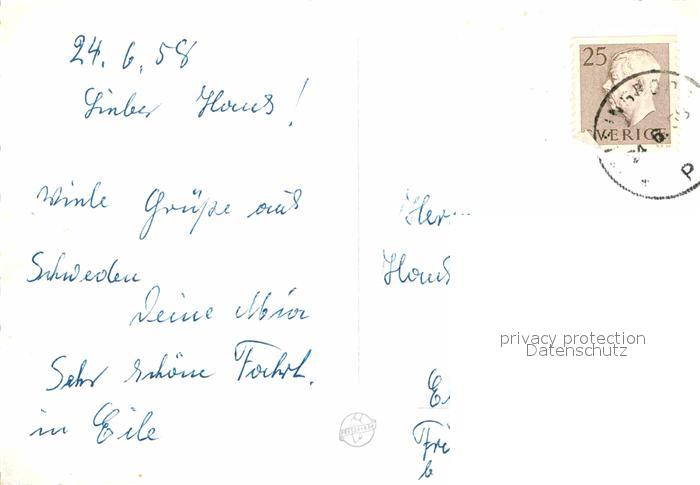 24.6.58
Lieber Hans!
Viele Grüße aus
Schweden
Deine Mia
Sehr schöne Fahrt.
in Eile
25
SVERIGE
Her
Hans
privacy protection
Datenschutz
Fri
b